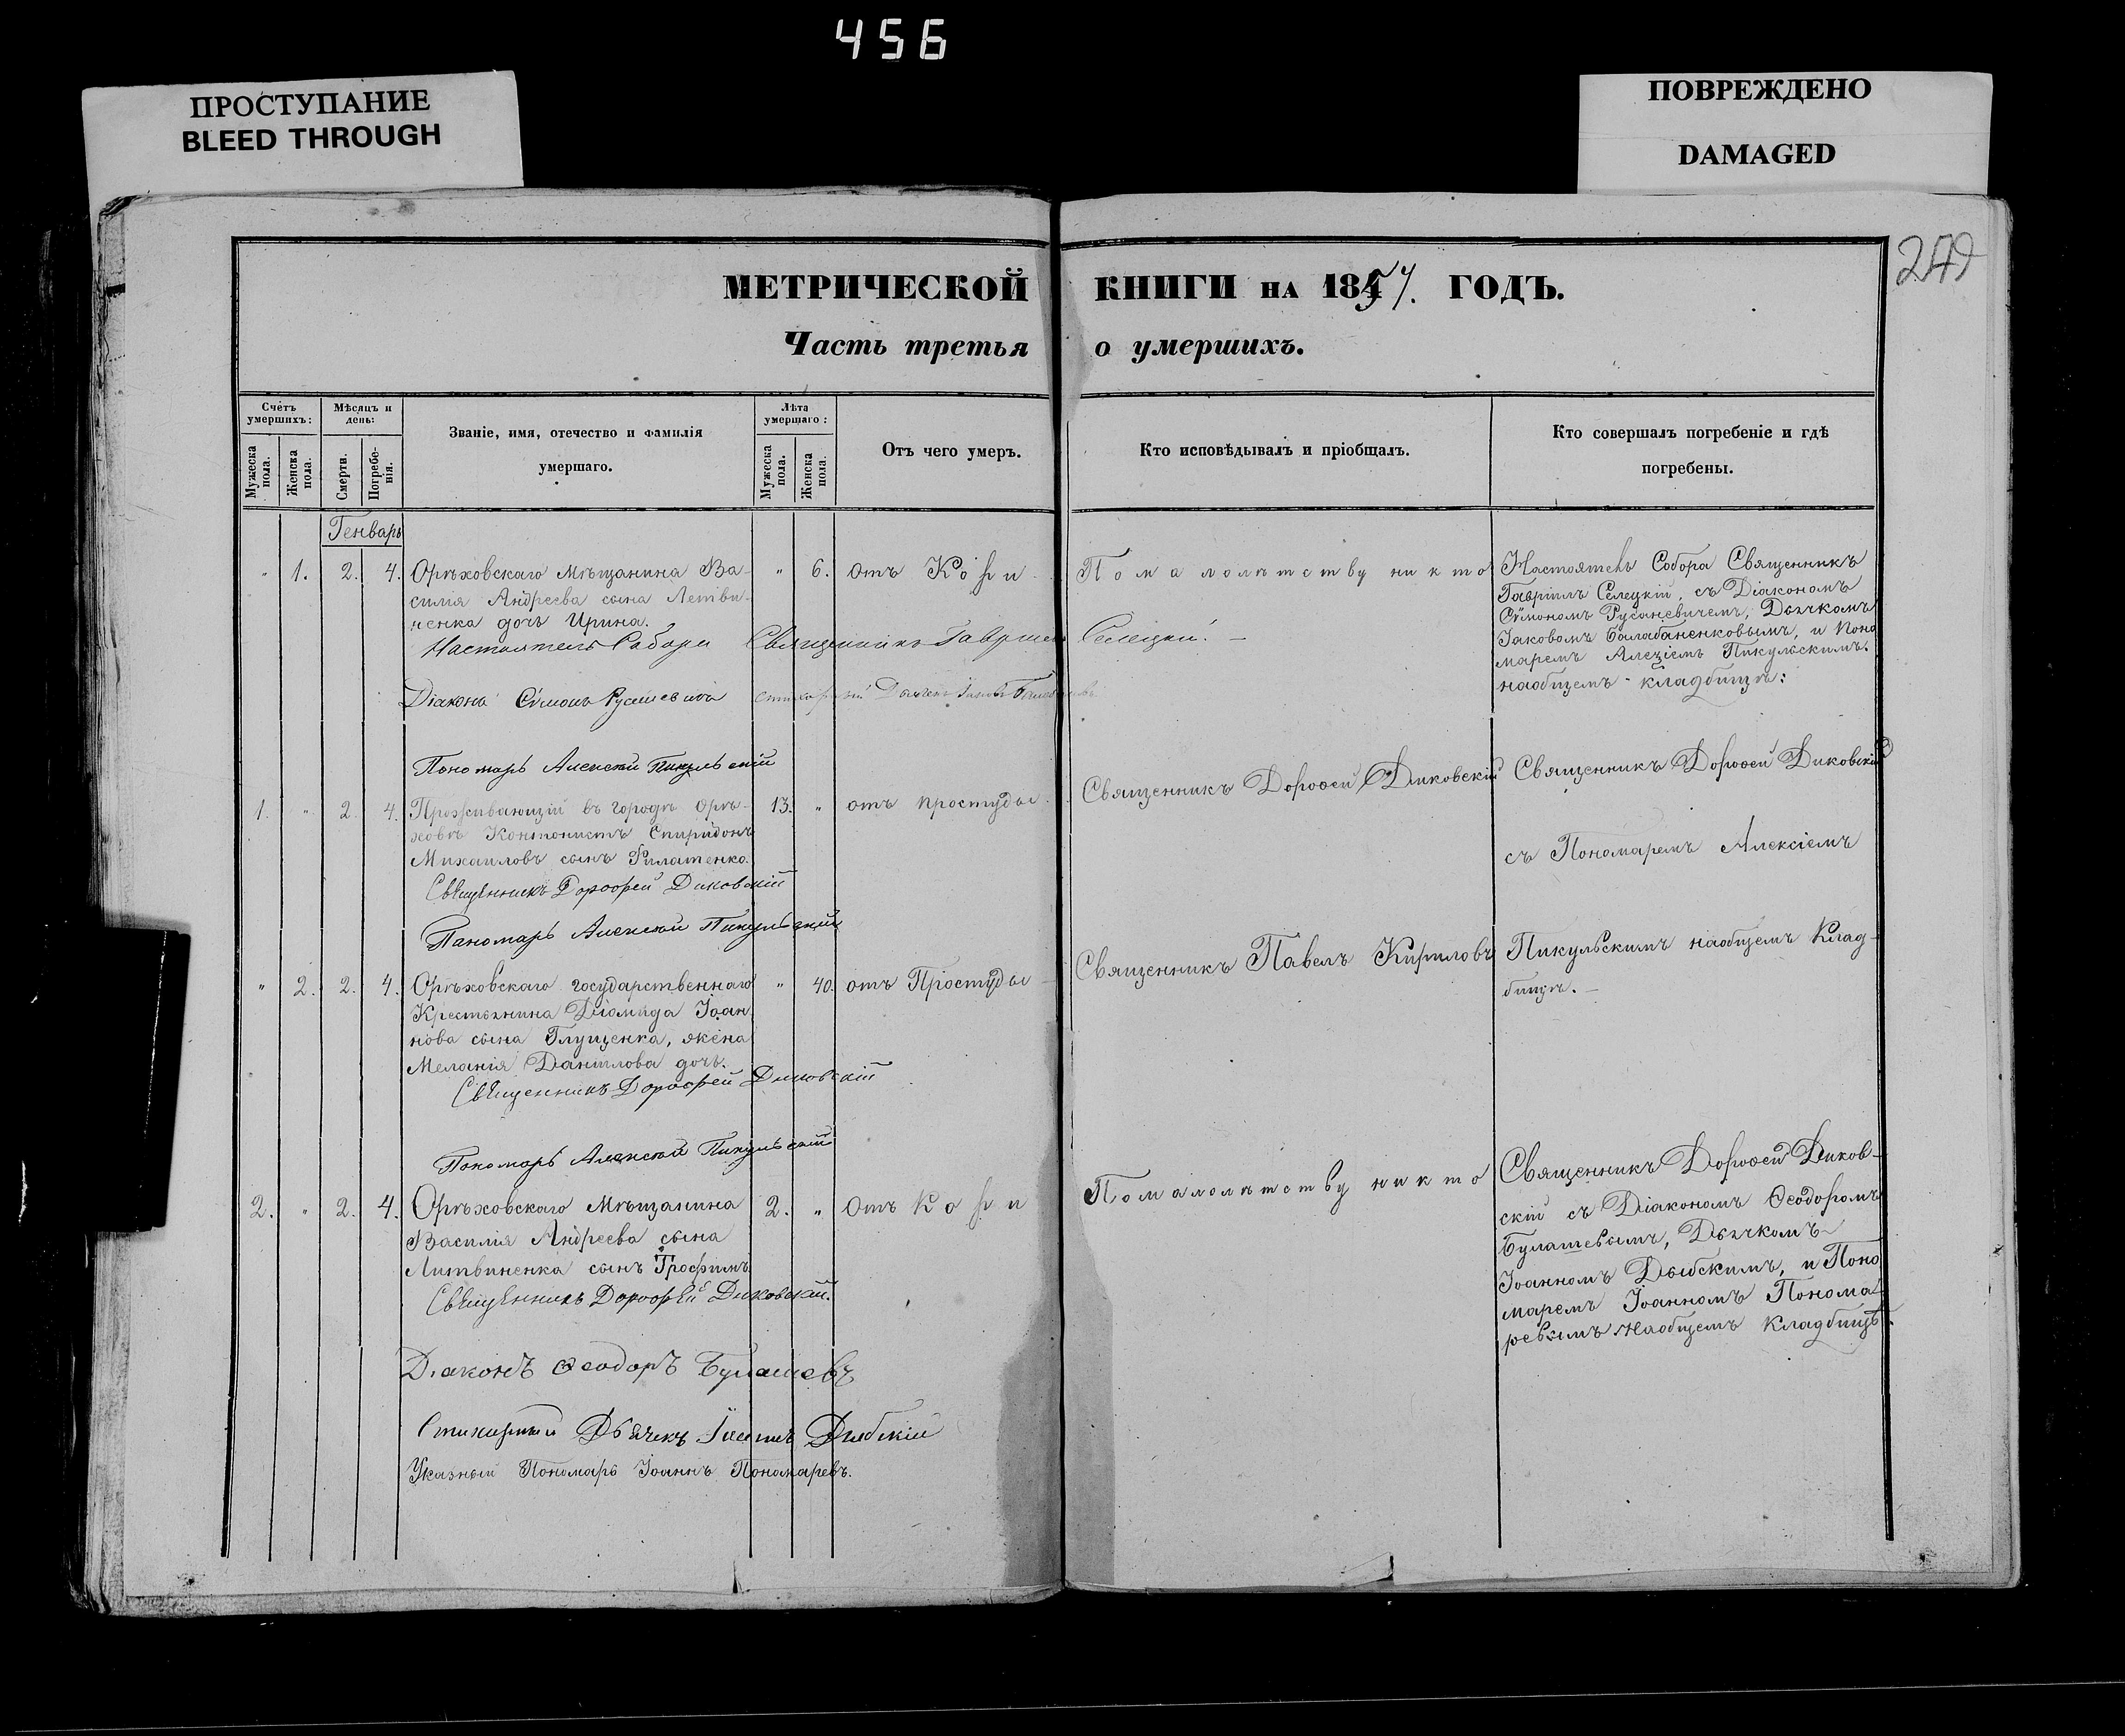 456
ПРОСТУПАНИЕ
BLEED THROUGH
ПОВРЕЖДЕНО
DAMAGED
МЕТРИЧЕСКОЙ КНИГИ НА 1854. ГОДЪ.
Часть третья о умершихъ.
Счетъ умершихъ:
Мужеска пола.
Женска пола.
Мѣсяцъ и день:
Смерти.
Погребенія.
Званіе, имя, отечество и фамилія
умершаго.
Лѣта умершаго:
Мужеска пола.
Женска пола.
Отъ чего умеръ.
Кто исповѣдывалъ и пріобщалъ.
Кто совершалъ погребеніе и гдѣ
погребены.
Генварь
" 1. 2. 4. Орѣховскаго Мѣщанина Ва-
силія Андреева сына Летви-
ненка дочь Ирина.
" 6. отъ Кори
По малолѣтству никто
Настоятель Собора Священникъ
Гавріилъ Селецкій, съ Діакономъ
Сѵмономъ Русаневичемъ, Дьячкомъ
Іаковомъ Балабаненковымъ, и Поно
маремъ Алезіемъ Пикульскимъ.
наобщемъ кладбищѣ:
Настоятель Собора Священникъ Гавріилъ Селецкій. —
Діаконъ Сѵмонъ стихарный Дьячекъ Іаковъ
Пономарь Алексѣй Пикульскій
1. " 2. 4. Проживающій въ городѣ Орѣ-
ховѣ Контонистъ Спиридонъ
Михаиловъ сынъ Филатенко.
13. " отъ простуды.
Священникъ Дороѳей Диковскій
Священникъ Дороѳей Диковскій
съ Пономаремъ Алексіемъ
Пикульскимъ наобщемъ Клад-
бищѣ. —
Священникъ Дорофей Диковскій
Паномарь Алексѣй Пикульскій
" 2. 2. 4. Орѣховскаго государственнаго
Крестьянина Діомида Іоан
нова сына Глущенка, жена
Меланія Даніилова дочь.
" 40. отъ Простуды —
Священникъ Павелъ Кириловъ
Священникъ Дорофей Диковскій
Пономарь Алексѣй Пикульскій
2. " 2. 4. Орѣховскаго Мѣщанина
Василія Андреева сына
Литвиненка сынъ Трофимъ
2. " Отъ Кори
По малолѣтству никто
Священникъ Дороѳей Диков-
скій съ Діакономъ Ѳеодоромъ
Булашевымъ, Дьячкомъ
Іоанномъ Дыбскимъ, и Поно
маремъ Іоанномъ Понома-
ревымъ Наобщемъ Кладбищѣ.
Священникъ Дорофей Диковскій.
Діаконъ Ѳеодоръ Булашевъ
Стихарный Дьячекъ Іоаннъ Дыбскій
Указный Пономарь Іоаннъ Пономаревъ.